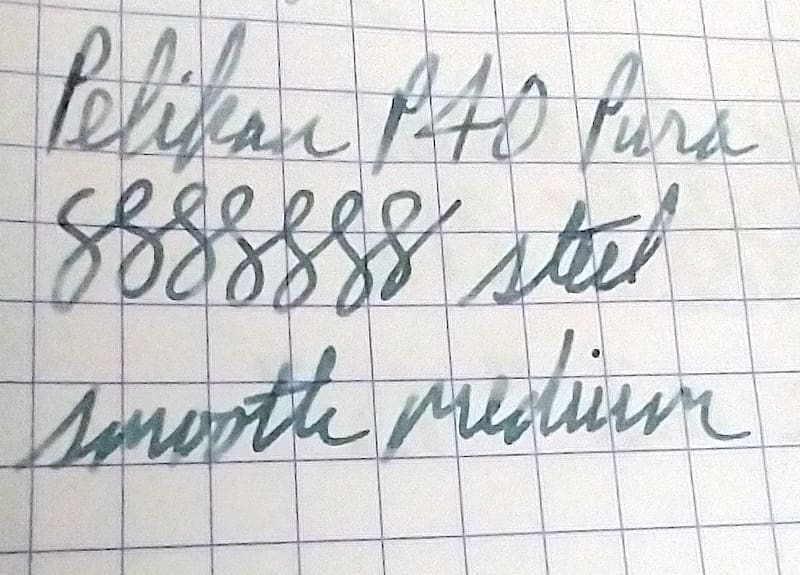 Pelikan P40 Pura
8888888 steel
smooth medium